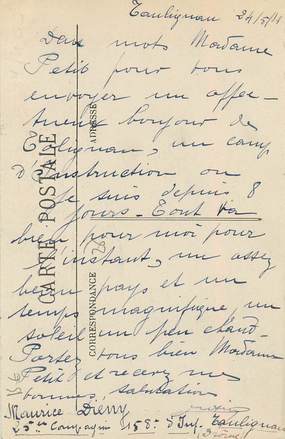 Taulignan 24/5/18
Deux mots Madame
Petit pour vous
envoyer un affec-
tueux bonjour de
Taulignan, un camp
d'instruction ou
je suis depuis 8
jours - Tout va
bien pour moi pour
l'instant, un assez
beau pays et un
temps magnifique, un
soleil un peu chaud -
Portez vous bien Madame
Petit et recevez mes
bonnes salutation
Maurice
25me Compagnie 158e d'Inf. Taulignan
Drôme
CARTE POSTALE
CORRESPONDANCE
ADRESSE